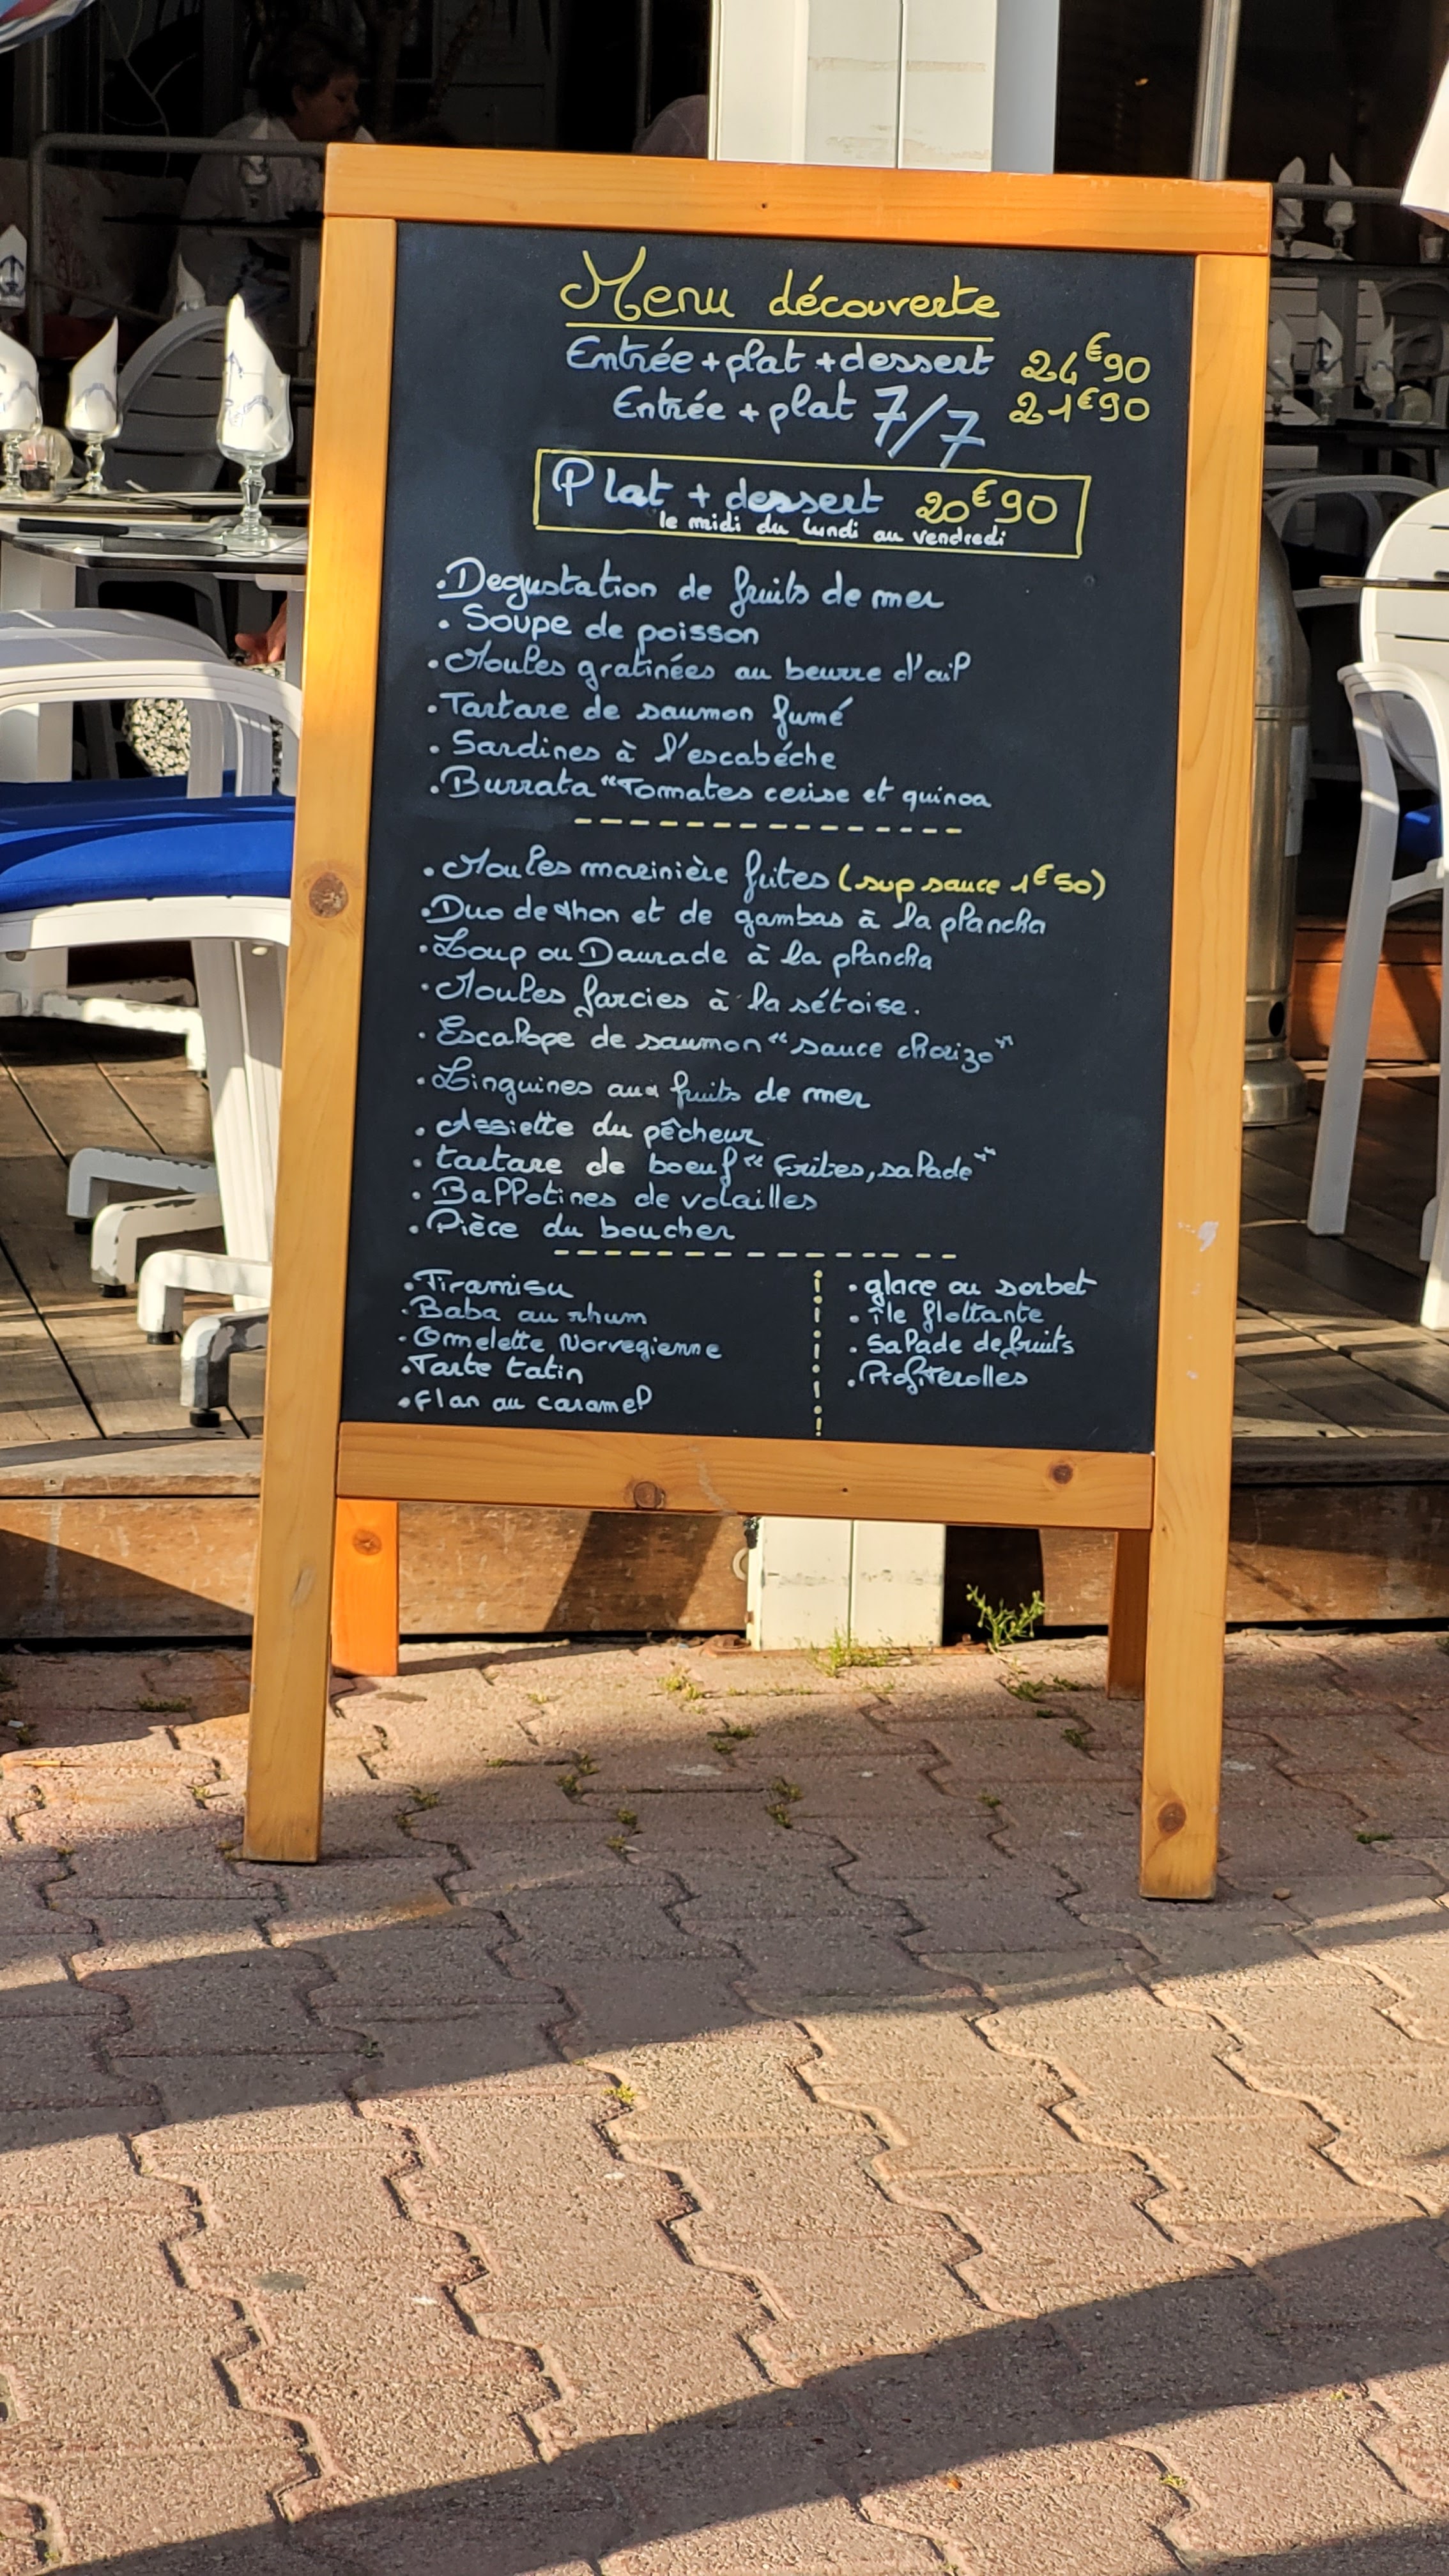 Menu découverte
Entrée + plat + dessert 24€90
Entrée + plat 7/7 21€90
Plat + dessert 20€90
le midi du lundi au vendredi
. Degustation de fruits de mer
. Soupe de poisson
. Moules gratinées au beurre d'ail
. Tartare de saumon fumé
. Sardines à l'escabéche
. Burrata "Tomates cerise et quinoa
. Moules marinière frites (sup sauce 1€50)
. Duo de thon et de gambas à la plancha
. Loup ou Daurade à la plancha
. Moules farcies à la sétoise.
. Escalope de saumon "sauce chorizo"
. Linguines aux fruits de mer
. Assiette du pêcheur
. tartare de boeuf "Frites, salade"
. Ballotines de volailles
. Pièce du boucher
. Tiramisu
. Baba au rhum
. Omelette Norvegienne
. Tarte tatin
. Flan au caramel
. glace ou sorbet
. île flottante
. Salade de fruits
. Profiterolles